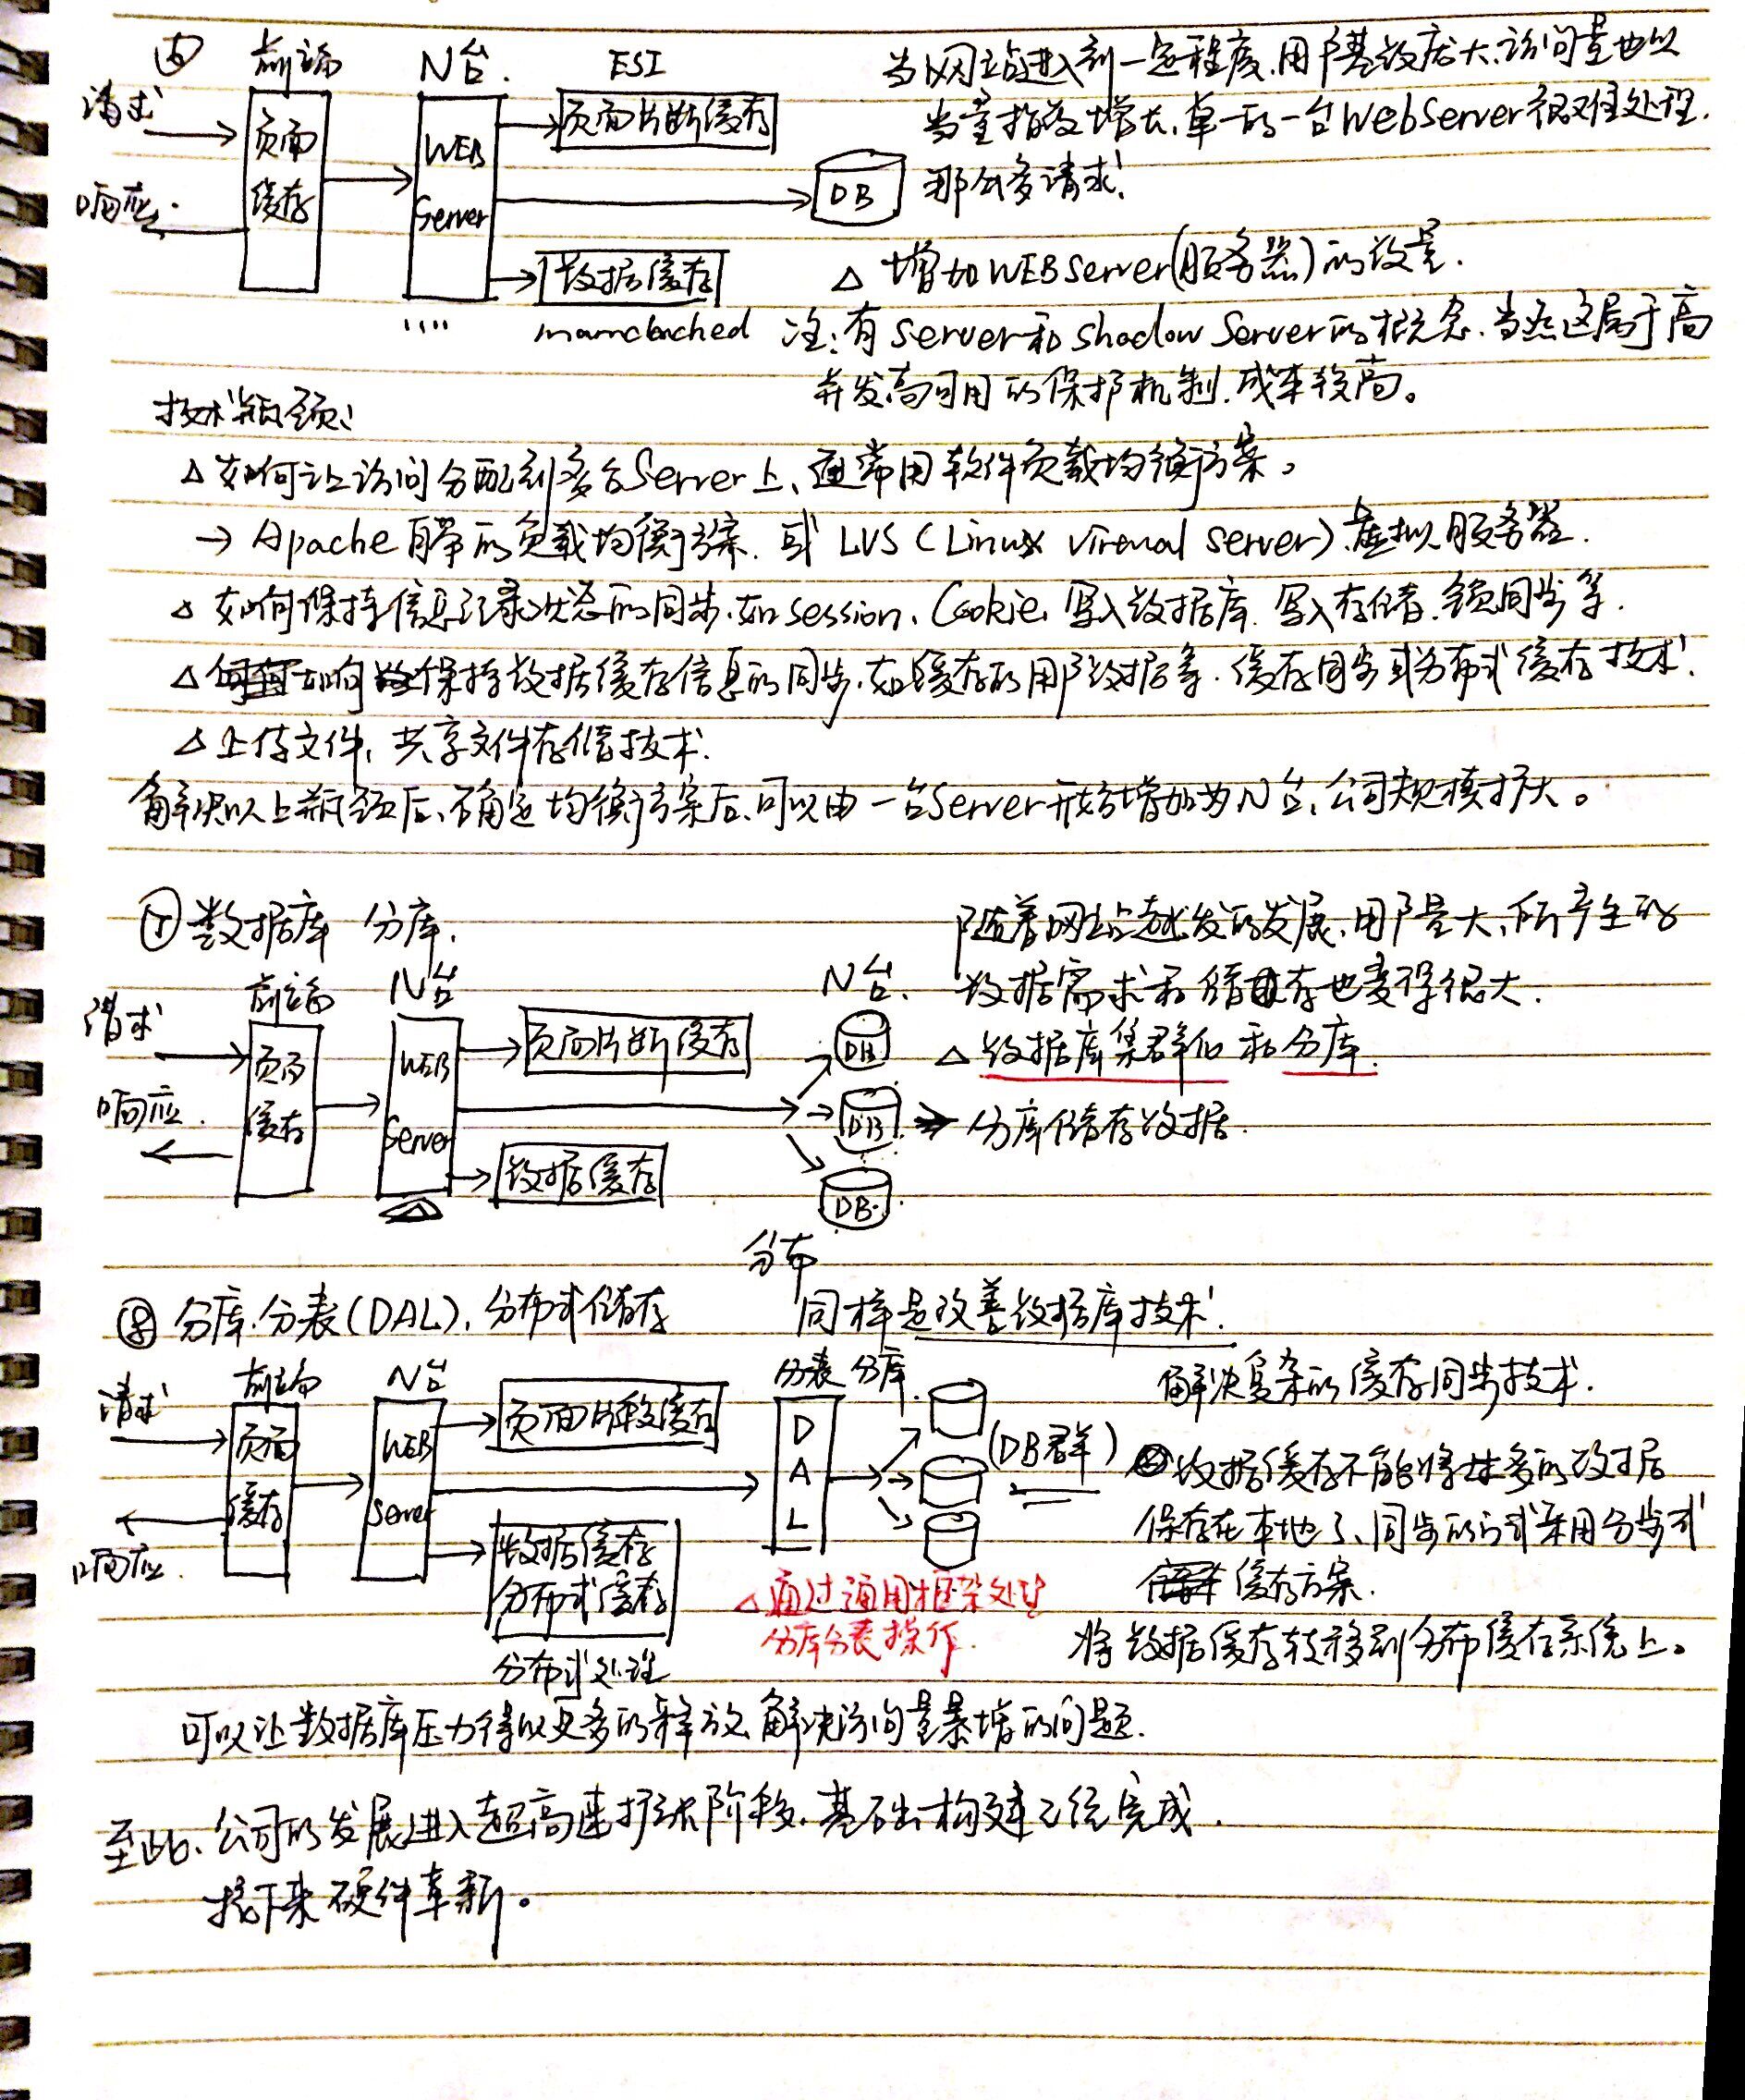 ⑥ 前端 N台. ESI
请求
页面缓存
WEB Server
页面片断缓存
响应.
DB
数据缓存
mamcbached
....
当网站进入到一定程度,用户基数庞大,访问量也以
当量指数增长,单一的一台WebServer很难处理.
那么多请求.
△ 增加WEB Server(服务器)的数量.
注:有Server和Shadow Server的概念.当然这属于高
并发高可用的保护机制.成本较高。
技术瓶颈:
△ 如何让访问分配到多台Server上、通常用软件负载均衡方案。
→ Apache自带的负载均衡方案. 或 LVS (Linux Virtual Server)虚拟服务器.
△ 如何保持信息记录状态的同步.如session、Cookie,写入数据库.写入存储.锁同步等.
△ 如何保持数据缓存信息的同步.如缓存的用户数据等.缓存同步或分布式缓存技术.
△ 上传文件,共享文件存储技术.
解决以上瓶颈后、确定均衡方案后.可以由一台Server开始增加为N台,公司规模扩大。
⑦ 数据库 分库.
请求
前端
N台
页面缓存
WEB Server
页面片断缓存
响应.
数据缓存
N台.
DB
DB
DB.
随着网站越发的发展,用户量大,所产生的
数据需求和储存也变得很大.
△ 数据库集群化 和分库.
分库储存数据.
分布
⑧ 分库.分表(DAL),分布式储存
同样是改善数据库技术.
请求
前端
N台
页面缓存
WEB Server
页面片段缓存
响应.
数据缓存
分布式缓存
分布式处理
分表 分库.
DAL
(DB群)
△ 通过通用框架处理
分库分表操作.
解决复杂的缓存同步技术.
数据缓存不能将太多的数据
保存在本地了、同步的方式采用分步式
缓存方案.
将数据缓存转移到分布缓存系统上。
可以让数据库压力得以更多的释放.解决访问量暴增的问题.
至此、公司的发展进入超高速扩张阶段.基础构建已经完成.
接下来硬件革新。